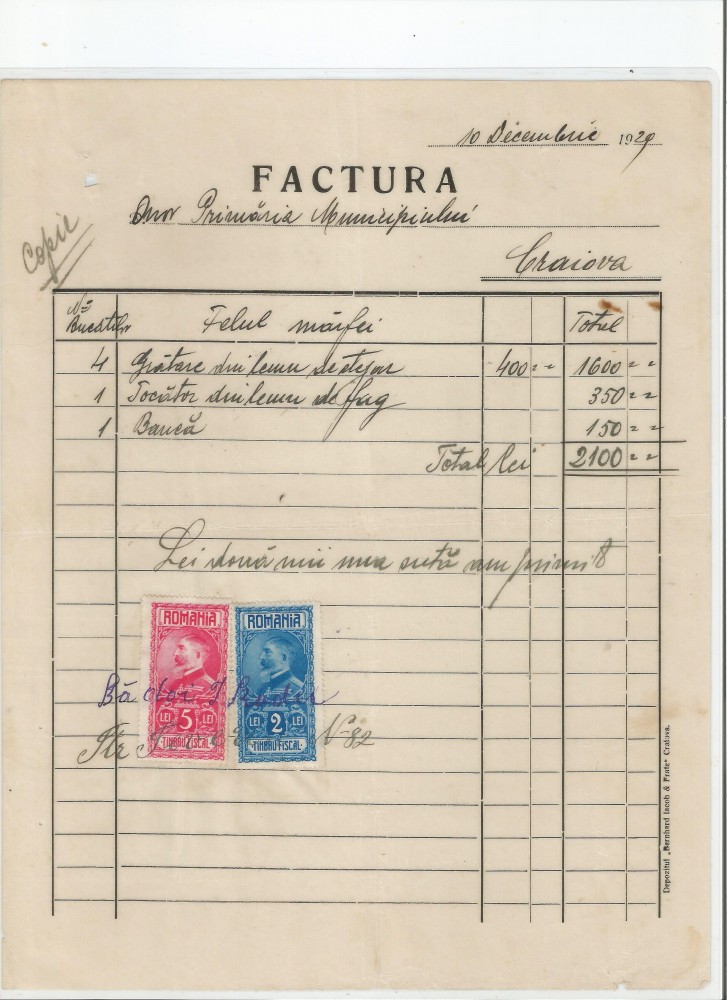 10 Decembrie 1929
FACTURA
Onor Primăria Municipiului
Craiova
Copie
No Bucăților Felul mărfei Total
4 Grătare din lemn de stejar 400 = = 1600 = =
1 Tocător din lemn de fag 350 = =
1 Bancă 150 = =
Total lei 2100 = =
Lei două mii una sută am primit
ROMANIA ROMANIA
Bădoi
LEI 5 LEI LEI 2 LEI
TIMBRU FISCAL TIMBRU FISCAL
Str No 82
Depozitul „Bernhard Iacob & Frate" Craiova.